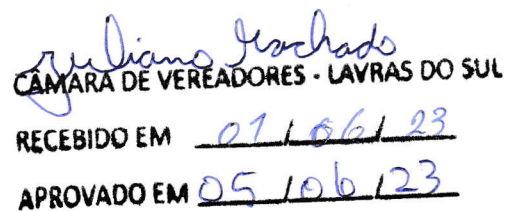 Juliano Machado
CÂMARA DE VEREADORES - LAVRAS DO SUL
RECEBIDO EM 01/06/23
APROVADO EM 05/06/23